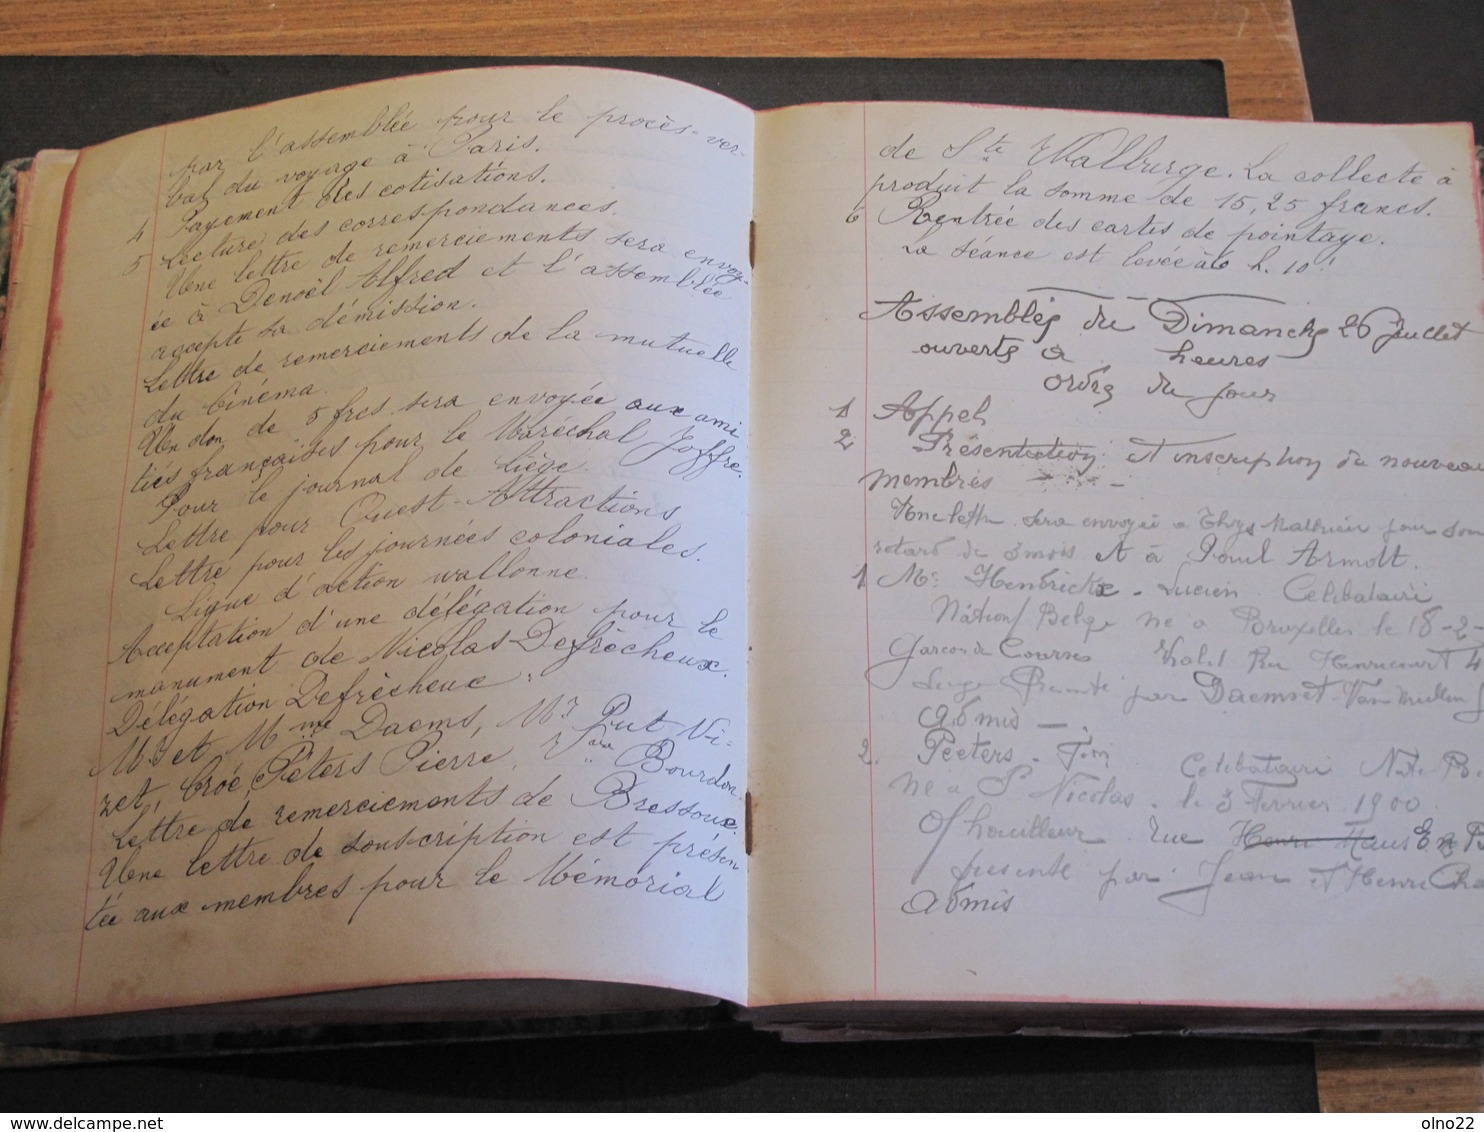 par l'assemblée pour le procès-ver-
bal du voyage à Paris.
4 Payement des cotisations.
5 Lecture des correspondances.
Une lettre de remerciements sera envoy-
ée à Denoël Alfred et l'assemblée
accepte sa démission.
Lettre de remerciements de la mutuelle
du Cinéma.
Un don de 5 frcs sera envoyée aux ami
tiés françaises pour le Maréchal Joffre.
Pour le journal de Liège.
Lettre pour Ouest-Attractions
Lettre pour les journées coloniales.
Ligue d'action wallonne.
Acceptation d'une délégation pour le
monument de Nicolas Defrècheux.
Délégation Defrècheux :
Mr et Mme Daems, Mr Put Vi-
zet, Croé, Péters Pierre, Bourdon
Lettre de remerciements de Bressoux.
Une lettre de souscription est présen
tée aux membres pour le Mémorial
de Ste Walburge. La collecte à
produit la somme de 15,25 francs.
6 Rentrée des cartes de pointage.
La séance est levée à 6 h. 10'!
Assemblés du Dimanche 26 juillet
ouverts a heures
Ordre du jour
1 Appel
2 Présentation et inscription de nouveau
membres
Une lettre sera envoyée a Thys Mathieu pour son
retard de 3 mois et à Poul Armott.
1 Mr Hendrickx - Lucien Celibataire
Nation/ Belge né a Bruxelles le 18-2-
Garcon de Courses Rue Henricourt 4
Liege Presenté par Daemset Van Mullen
admis -
2. Peeters - Jean Celibataire Nat. B.
né a St Nicolas - le 3 Fevrier 1900
houilleur rue Henri Maus En B
presente par Jean et Henri Cha
admis
olno22